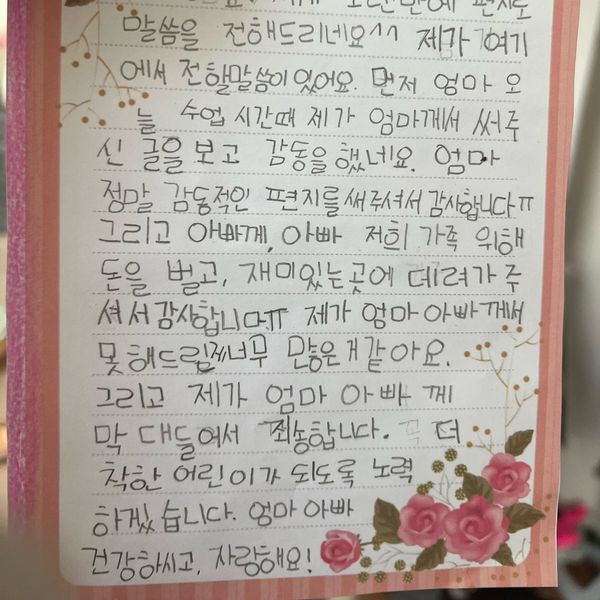 편지로
말씀을 전해드리네요^^ 제가 여기
에서 전할말씀이 있어요. 먼저 엄마 오
늘 수업 시간때 제가 엄마께서 써주
신 글을 보고 감동을 했네요. 엄마
정말 감동적인 편지를 써주셔서 감사합니다ㅠ
그리고 아빠께, 아빠 저희 가족 위해
돈을 벌고, 재미있는곳에 데려가 주
셔서감사합니다ㅠ 제가 엄마아빠께서
못해드림게너무 많은거같아요.
그리고 제가 엄마 아빠 께
막 대들어서 죄송합니다. 꼭 더
착한 어린이가 되도록 노력
하겠습니다. 엄마아빠
건강하시고, 사랑해요!